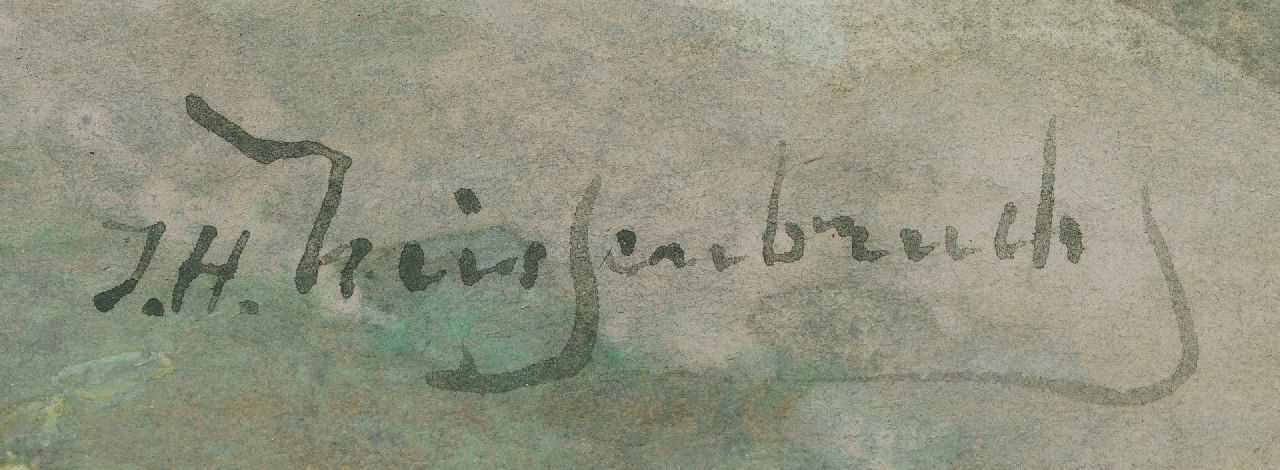 J.H. Weissenbruch